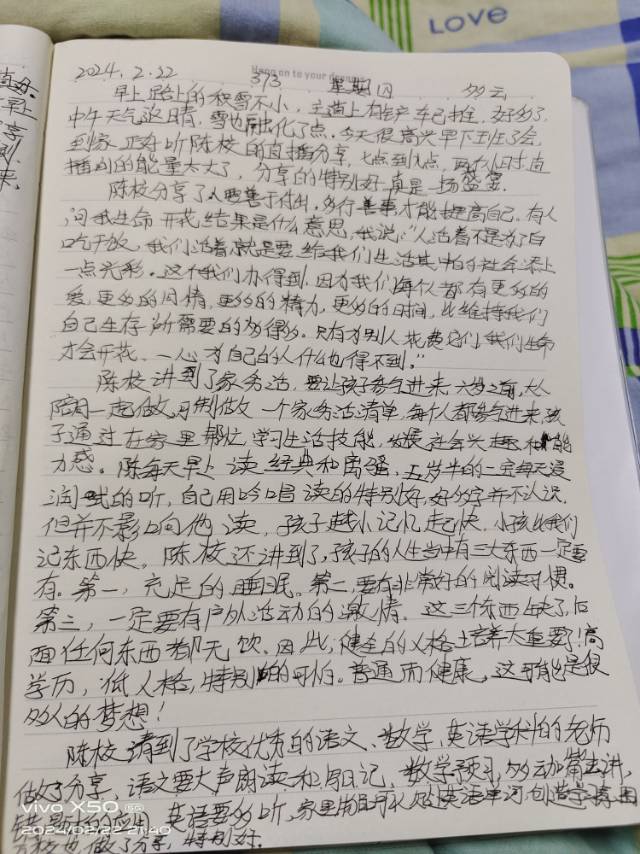 LOVE
Hang on to your dreams
2024.2.22 373 星期四 多云
早上路上的积雪不小，主道上有铲车已推，好多了，
中午天气返晴，雪也融化了点。今天很高兴早下班了会，
到家正好听陈校的直播分享，七点到九点，两个小时直
播间的能量太大了，分享的特别好，真是一场盛宴。
陈校分享了人要善于付出，多行善事才能提高自己。有人
问我生命开花结果是什么意思，我说："人活着不是为了白
吃干饭，我们活着就是要给我们生活其中的社会添上
一点光彩。这个我们办得到，因为我们每个人都有更多的
爱，更多的同情，更多的精力，更多的时间，比维持我们
自己生存所需要的多得多。只有为别人花费它们，我们生命
才会开花、一心为自己的人什么也得不到。"
陈校讲到了家务活，要让孩子参与进来，六岁之前，大人
陪同一起做，可制做一个家务活清单，每个人都参与进来，孩
子通过在家里帮忙，学习生活技能，发展社会兴趣和能
力感。陈每天早上读经典和离骚，五岁半的二宝每天浸
润式的听，自己用吟唱读的特别好，好多字并不认识，
但并不影响他读，孩子越小记忆起快，小孩比我们
记东西快。陈校还讲到了，孩子的人生当中有三大东西一定要
有。第一，充足的睡眠。第二，要有非常好的阅读习惯。
第三，一定要有户外活动的激情。这三个东西缺了，后
面任何东西都无饮。因此，健全的人格培养太重要！高
学历，低人格，特别的可怕。普通而健康，这可能是很
多人的梦想！
陈校请到了学校优秀的语文、数学、英语学科的老师
做了分享，语文要大声朗读和写日记，数学预习，多动嘴去讲，
错题本的应用，英语要多听，家里用可以贴英语单词，创造学习氛围
校也做了分享，特别好。
vivo X50 5G
2024/02/22 21:40